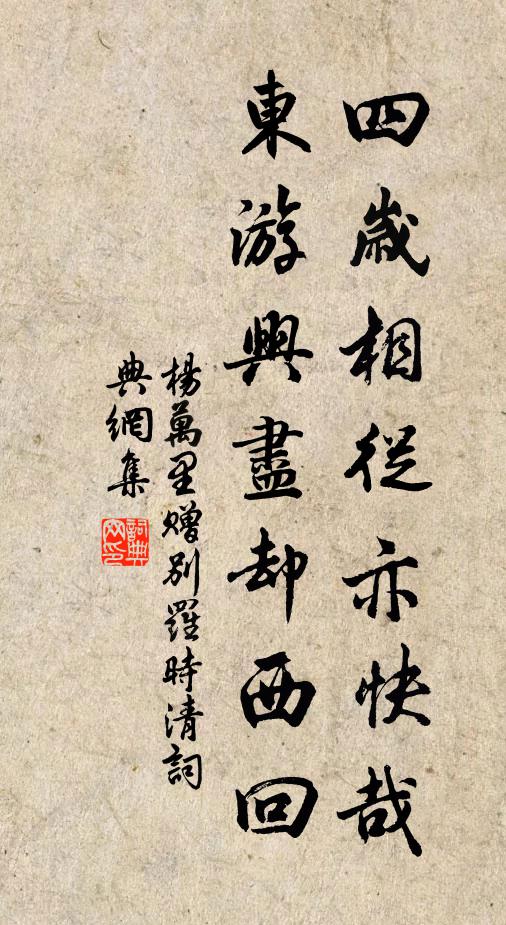 四歲相從亦快哉
東游興盡却西回
楊萬里贈别羅時清詞
典網集
詞典网印